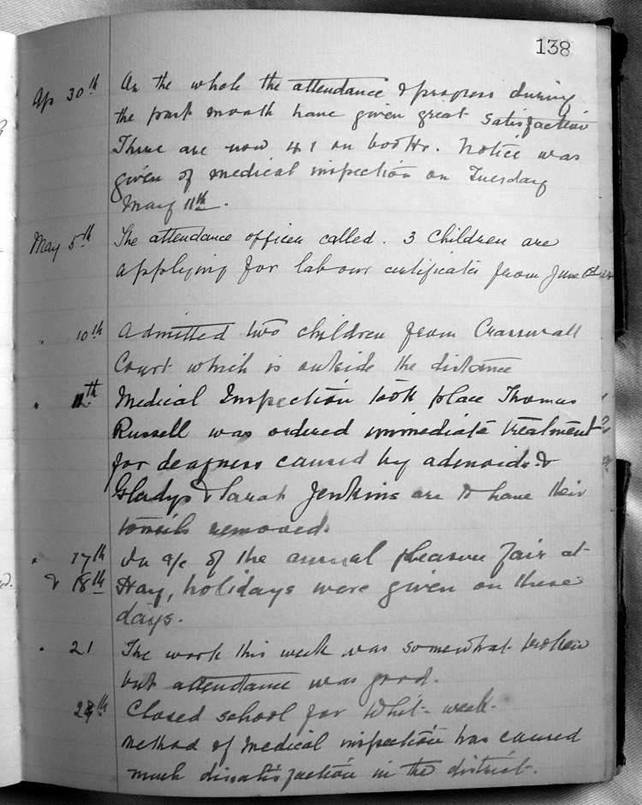 138
Ap 30th On the whole the attendance & progress during
the past month have given great satisfaction
There are now 41 on books. Notice was
given of medical inspection on Tuesday
May 11th.
May 5th The attendance officer called. 3 Children are
applying for labour certificates from June
" 10th Admitted two children from Crasswall
Court which is outside the distance
" 11th Medical Inspection took place Thomas
Russell was ordered immediate treatment
for deafness caused by adenoids &
Gladys & Sarah Jenkins are to have their
tonsils removed.
" 17th In a/c of the annual pleasure fair at
& 18th Hay, holidays were given on these
days.
" 21 The work this week was somewhat broken
but attendance was good.
28th Closed school for Whit-week.
Method of Medical inspection has caused
much dissatisfaction in the district.